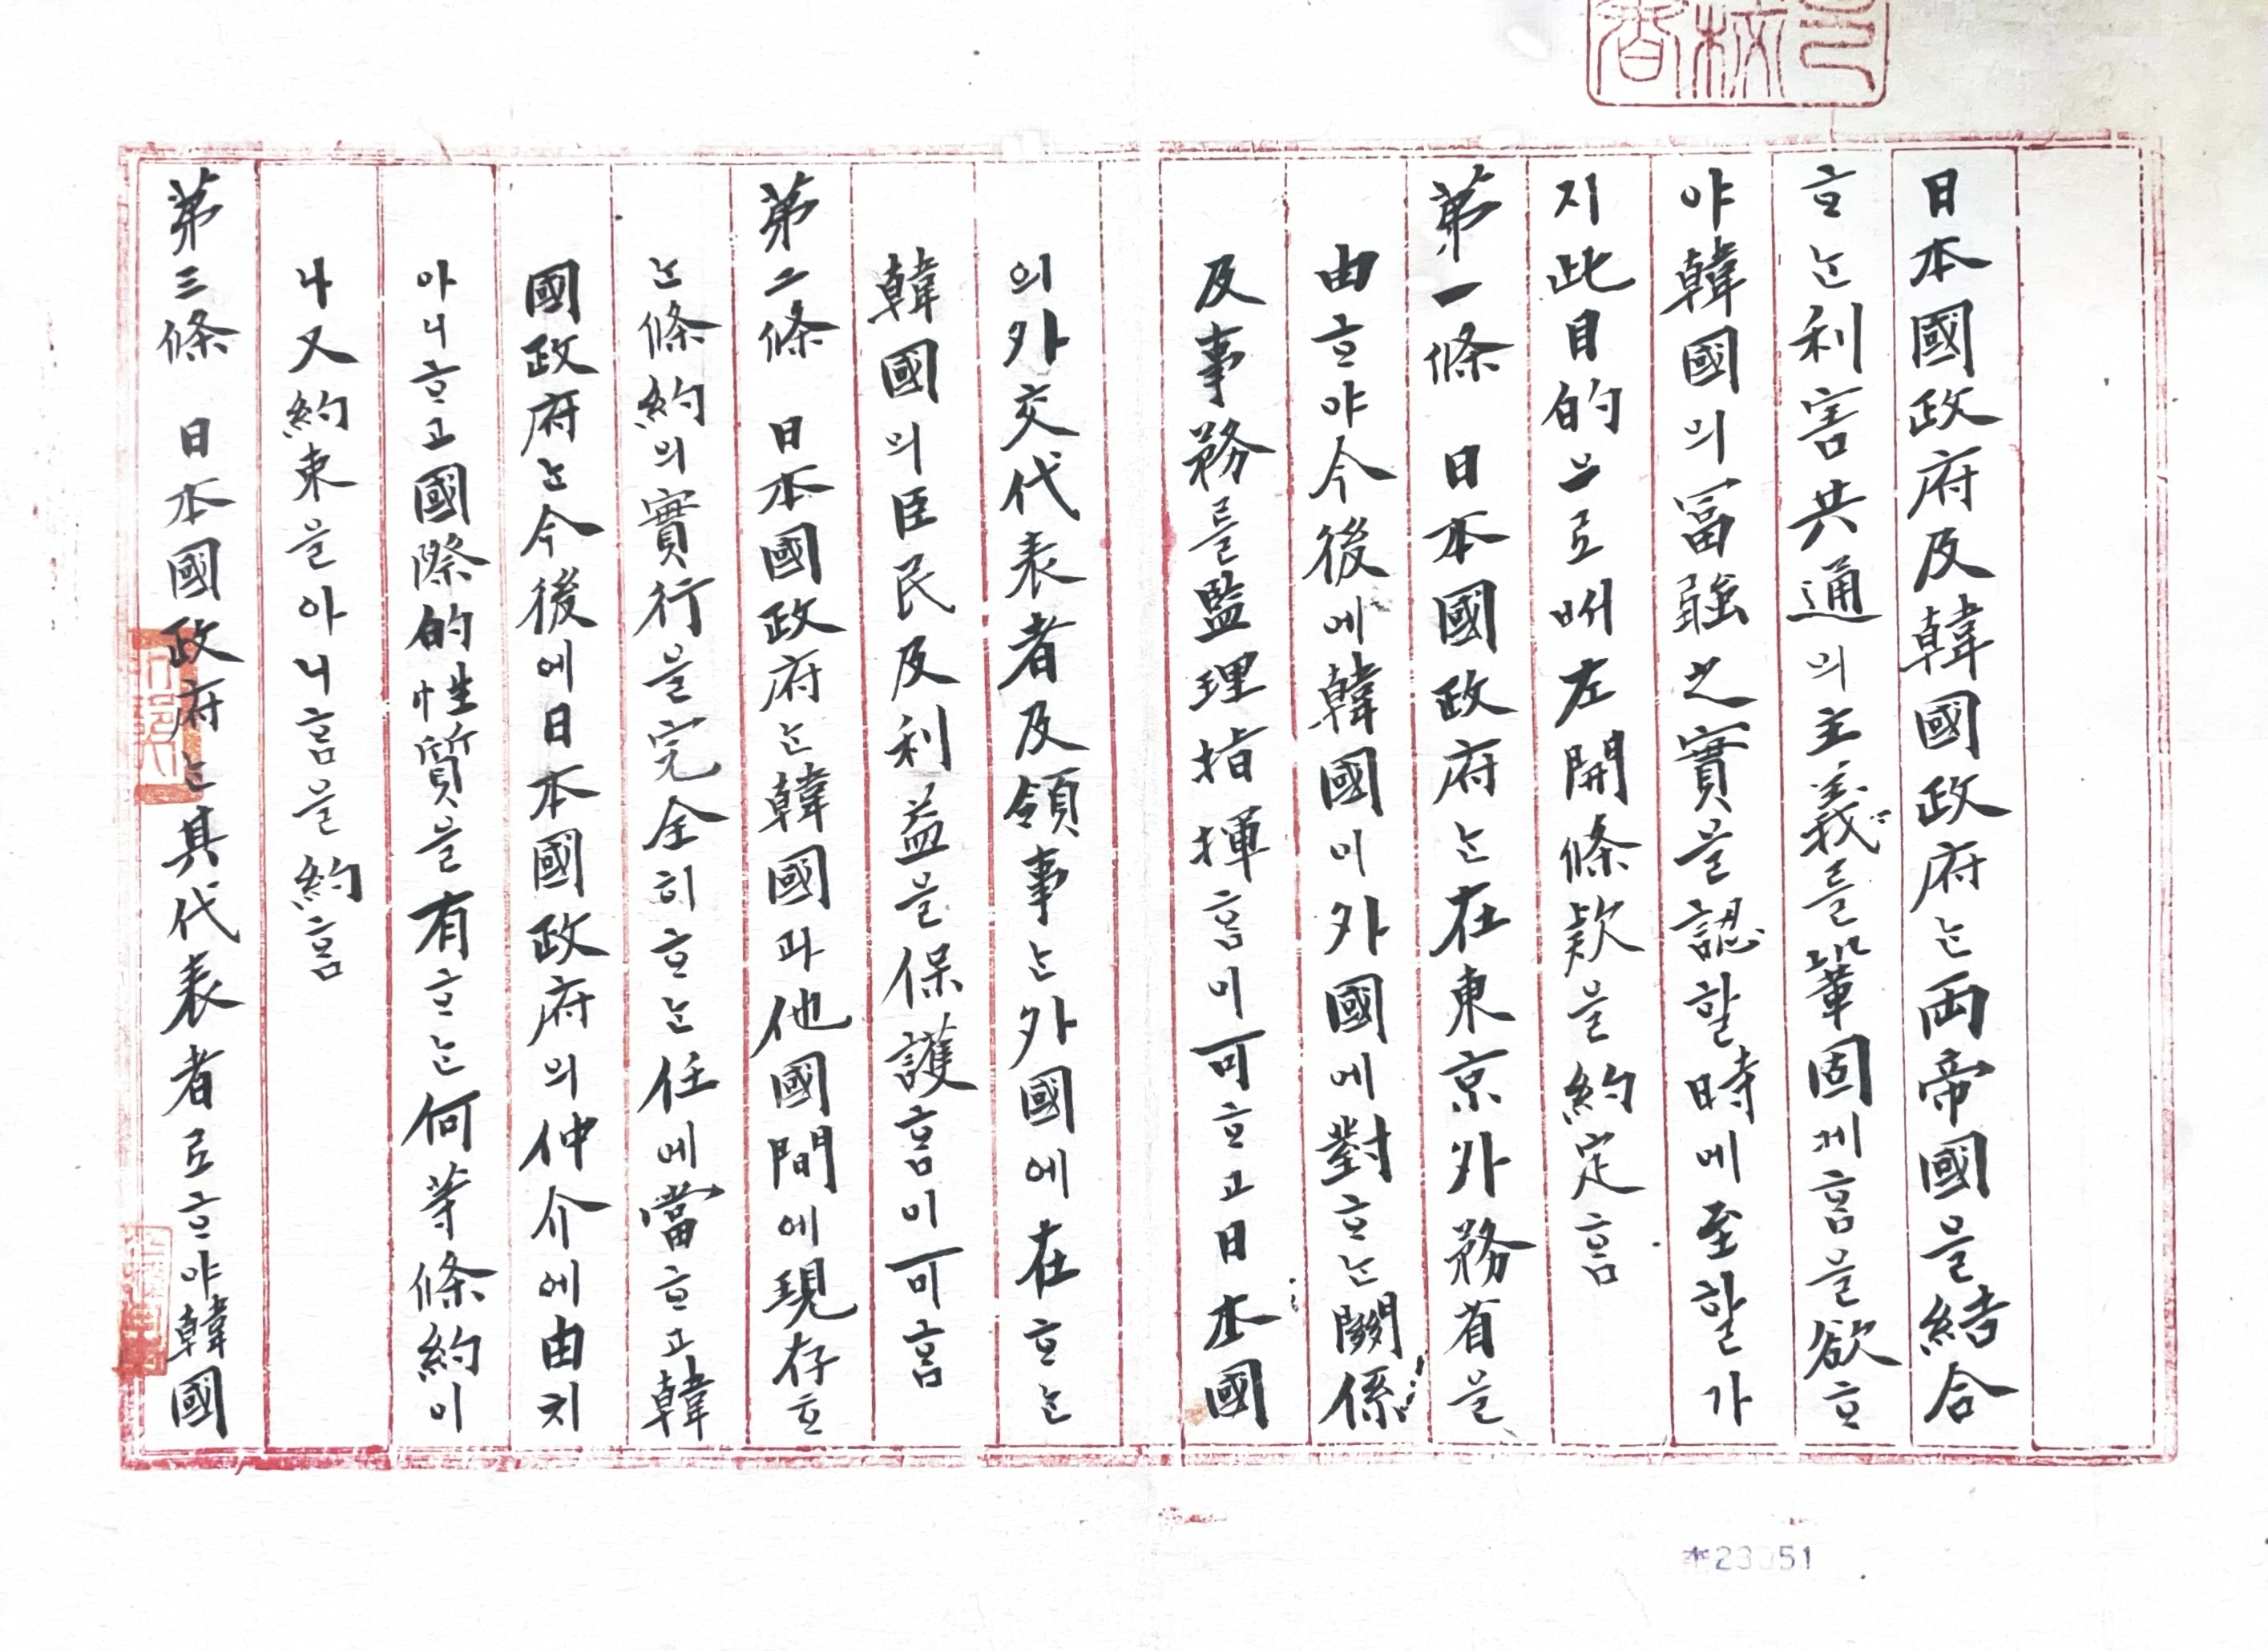 日本國政府及韓國政府는兩帝國을結合
ᄒᆞ는利害共通의主義를鞏固케ᄒᆞᆷ을欲ᄒᆞ
야韓國의冨强之實을認할時에至할가
지此目的으로ᄡᅥ左開條欵을約定ᄒᆞᆷ
第一條 日本國政府는在東京外務省을
由ᄒᆞ야今後에韓國이外國에對ᄒᆞ는關係
及事務를監理指揮ᄒᆞᆷ이可ᄒᆞ고日本國
의外交代表者及領事는外國에在ᄒᆞ는
韓國의臣民及利益을保護ᄒᆞᆷ이可ᄒᆞᆷ
第二條 日本國政府는韓國과他國間에現存ᄒᆞ
는條約의實行을完全히ᄒᆞ는任에當ᄒᆞ고韓
國政府는今後에日本國政府의仲介에由치
아니ᄒᆞ고國際的性質을有ᄒᆞ는何等條約이
나又約束을아니ᄒᆞᆷ을約ᄒᆞᆷ
第三條 日本國政府는其代表者로ᄒᆞ야韓國